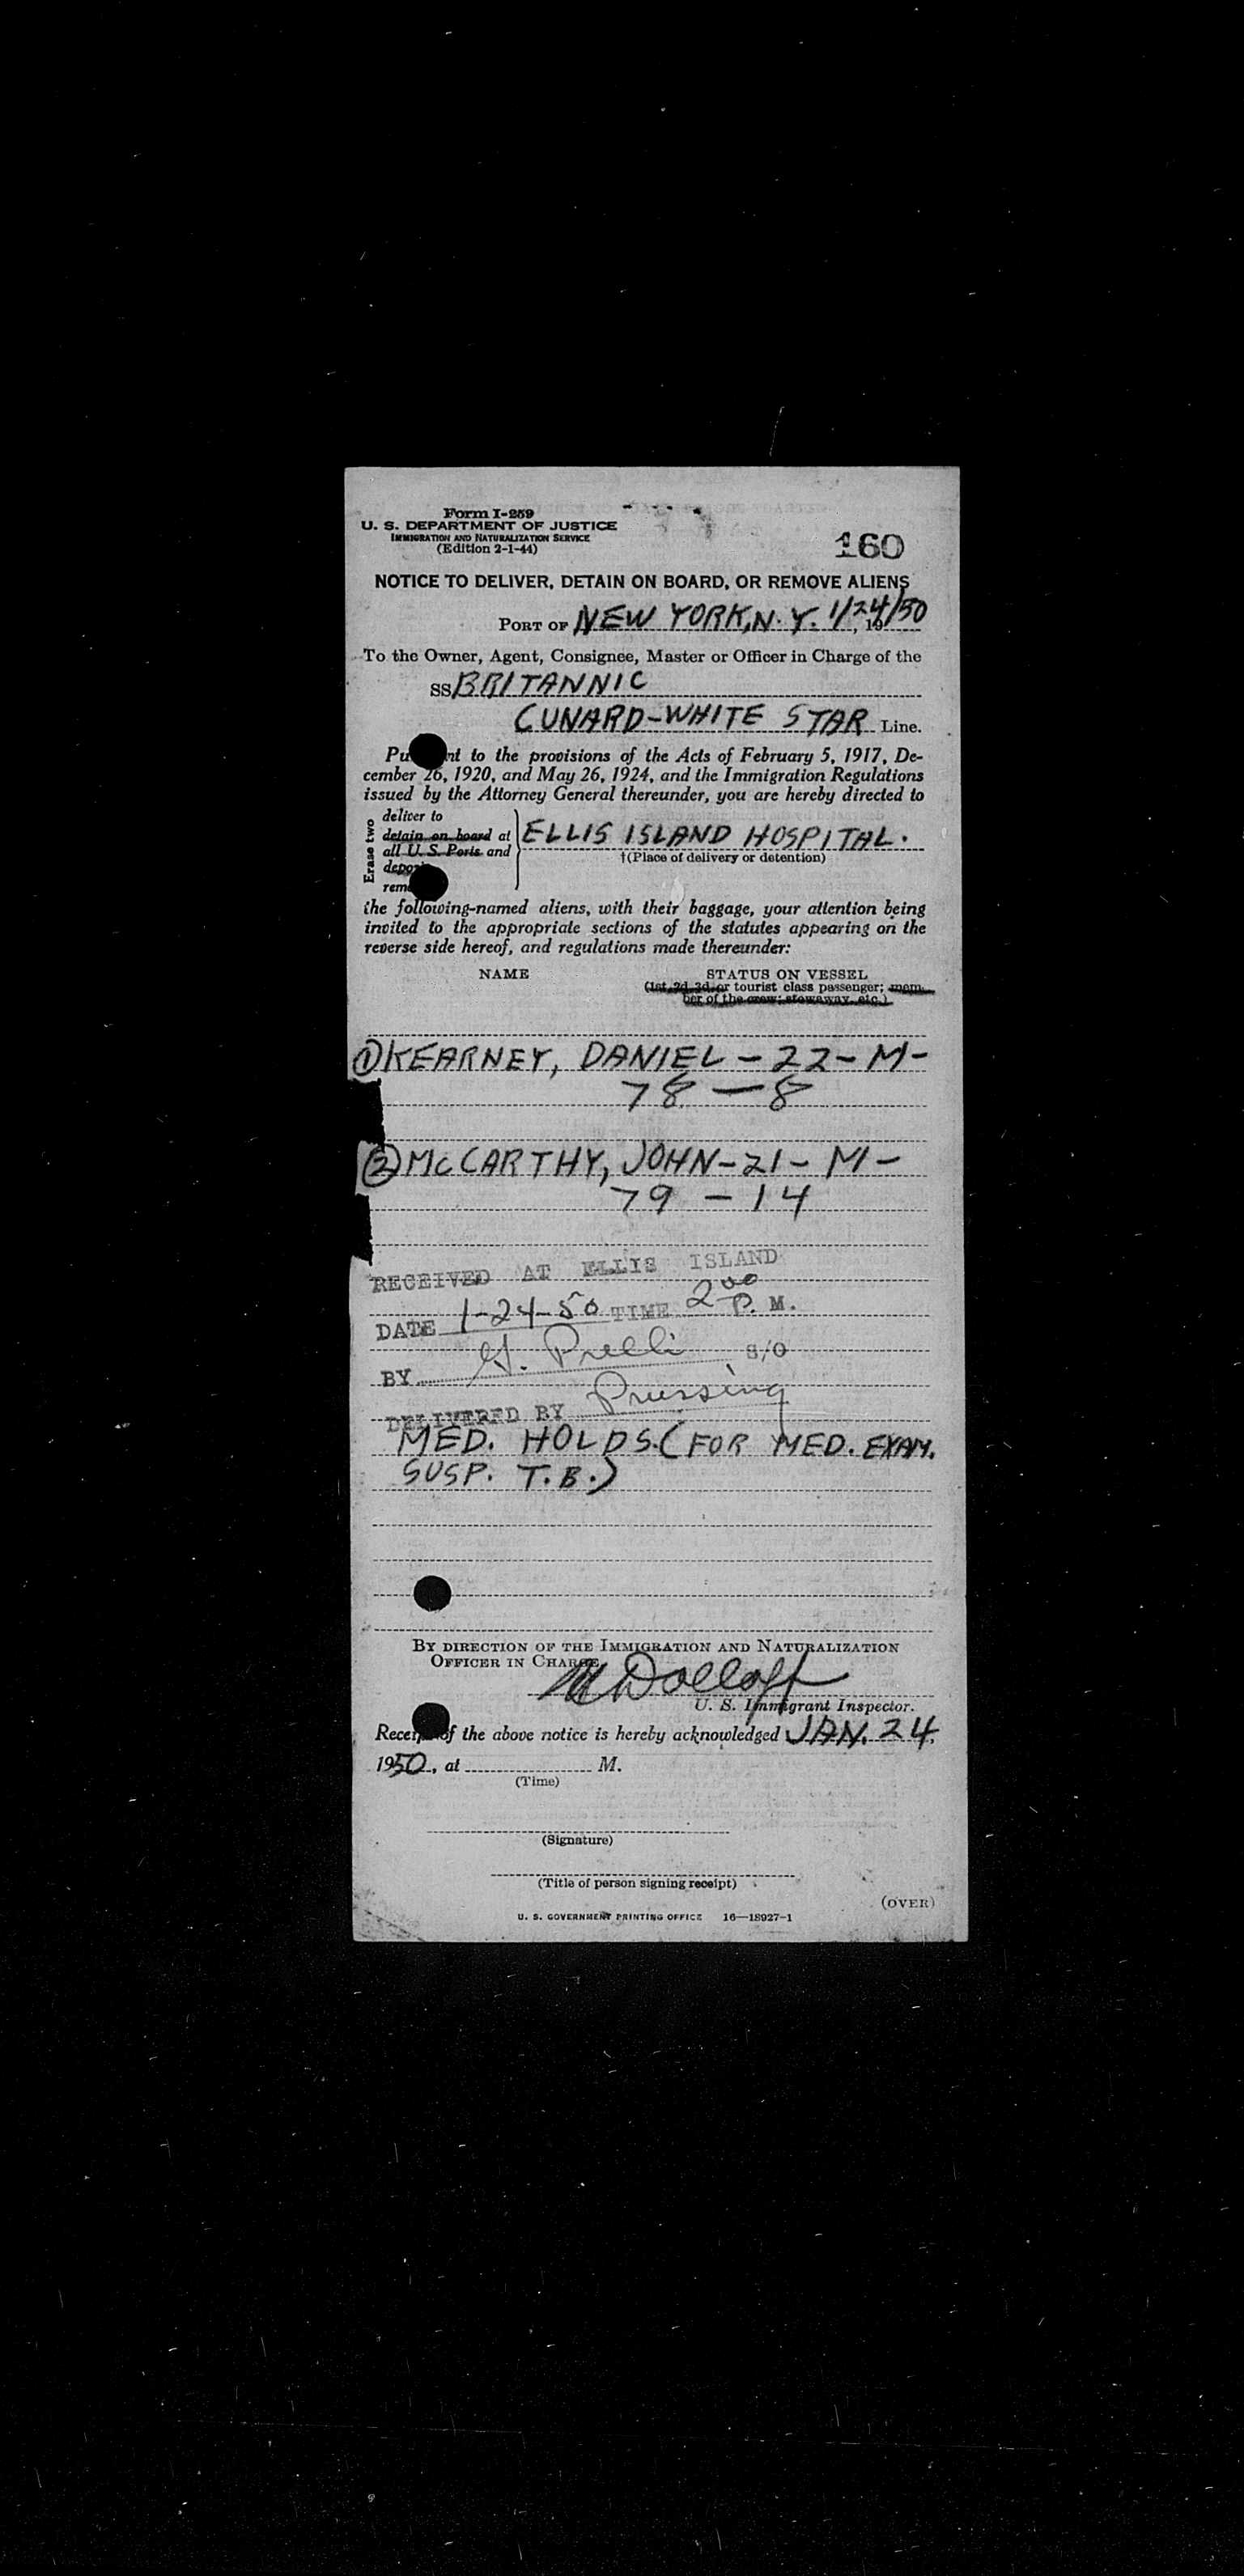 Form I-259
U. S. DEPARTMENT OF JUSTICE
IMMIGRATION AND NATURALIZATION SERVICE
(Edition 2-1-44)
160
NOTICE TO DELIVER, DETAIN ON BOARD, OR REMOVE ALIENS
PORT OF NEW YORK, N. Y. 1/24/50, 19
To the Owner, Agent, Consignee, Master or Officer in Charge of the
SS BRITANNIC
CUNARD-WHITE STAR Line.
Pu nt to the provisions of the Acts of February 5, 1917, De-
cember 26, 1920, and May 26, 1924, and the Immigration Regulations
issued by the Attorney General thereunder, you are hereby directed to
Erase two
deliver to
detain on board at
all U. S. Ports and
depo
rem
ELLIS ISLAND HOSPITAL.
†(Place of delivery or detention)
the following-named aliens, with their baggage, your attention being
invited to the appropriate sections of the statutes appearing on the
reverse side hereof, and regulations made thereunder:
NAME
STATUS ON VESSEL
(1st, 2d, 3d, or tourist class passenger; mem-
ber of the crew; stowaway, etc.)
① KEARNEY, DANIEL - 22 - M -
78 - 8
② McCARTHY, JOHN - 21 - M -
79 - 14
RECEIVED AT ELLIS ISLAND
DATE 1-24-50 TIME 2 00 P. M.
BY G. Prelli S/O
DELIVERED BY Prussing
MED. HOLDS. (FOR MED. EXAM.
SUSP. T. B.)
BY DIRECTION OF THE IMMIGRATION AND NATURALIZATION
OFFICER IN CHARGE
Dolloff
U. S. Immigrant Inspector.
Receip of the above notice is hereby acknowledged JAN. 24,
1950, at M.
(Time)
(Signature)
(Title of person signing receipt)
(OVER)
U. S. GOVERNMENT PRINTING OFFICE 16—18927-1